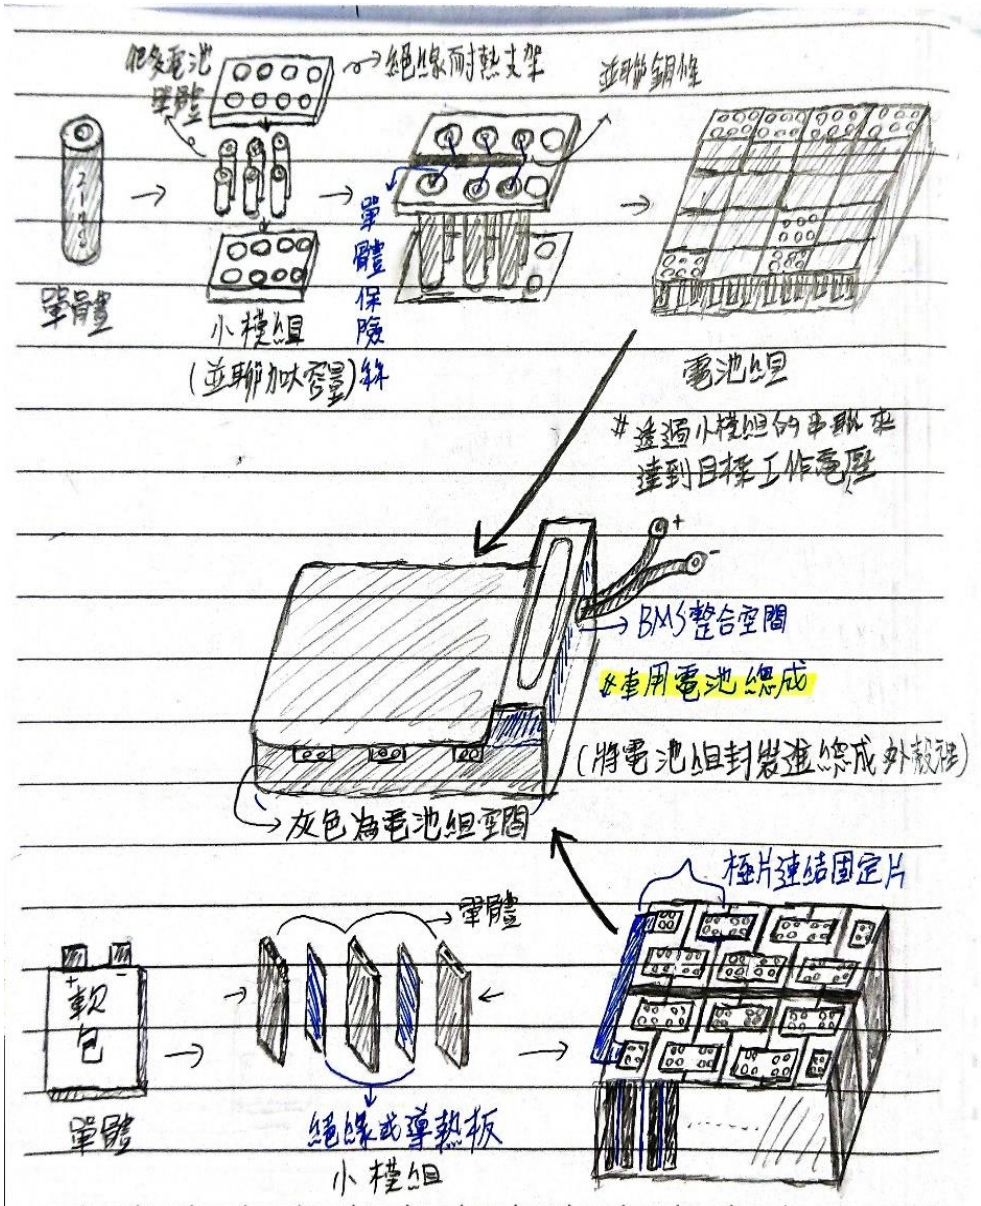 很多電池
單體
絕緣耐熱支架
並聯銅條
單體
小模組
(並聯加大容量)
單體保險絲
電池組
*透過小模組的串聯來
達到目標工作電壓
+
-
BMS整合空間
*車用電池總成
(將電池組封裝進總成外殼裡)
灰色為電池組空間
極片連結固定片
單體
+ -
軟包
單體
絕緣或導熱板
小模組